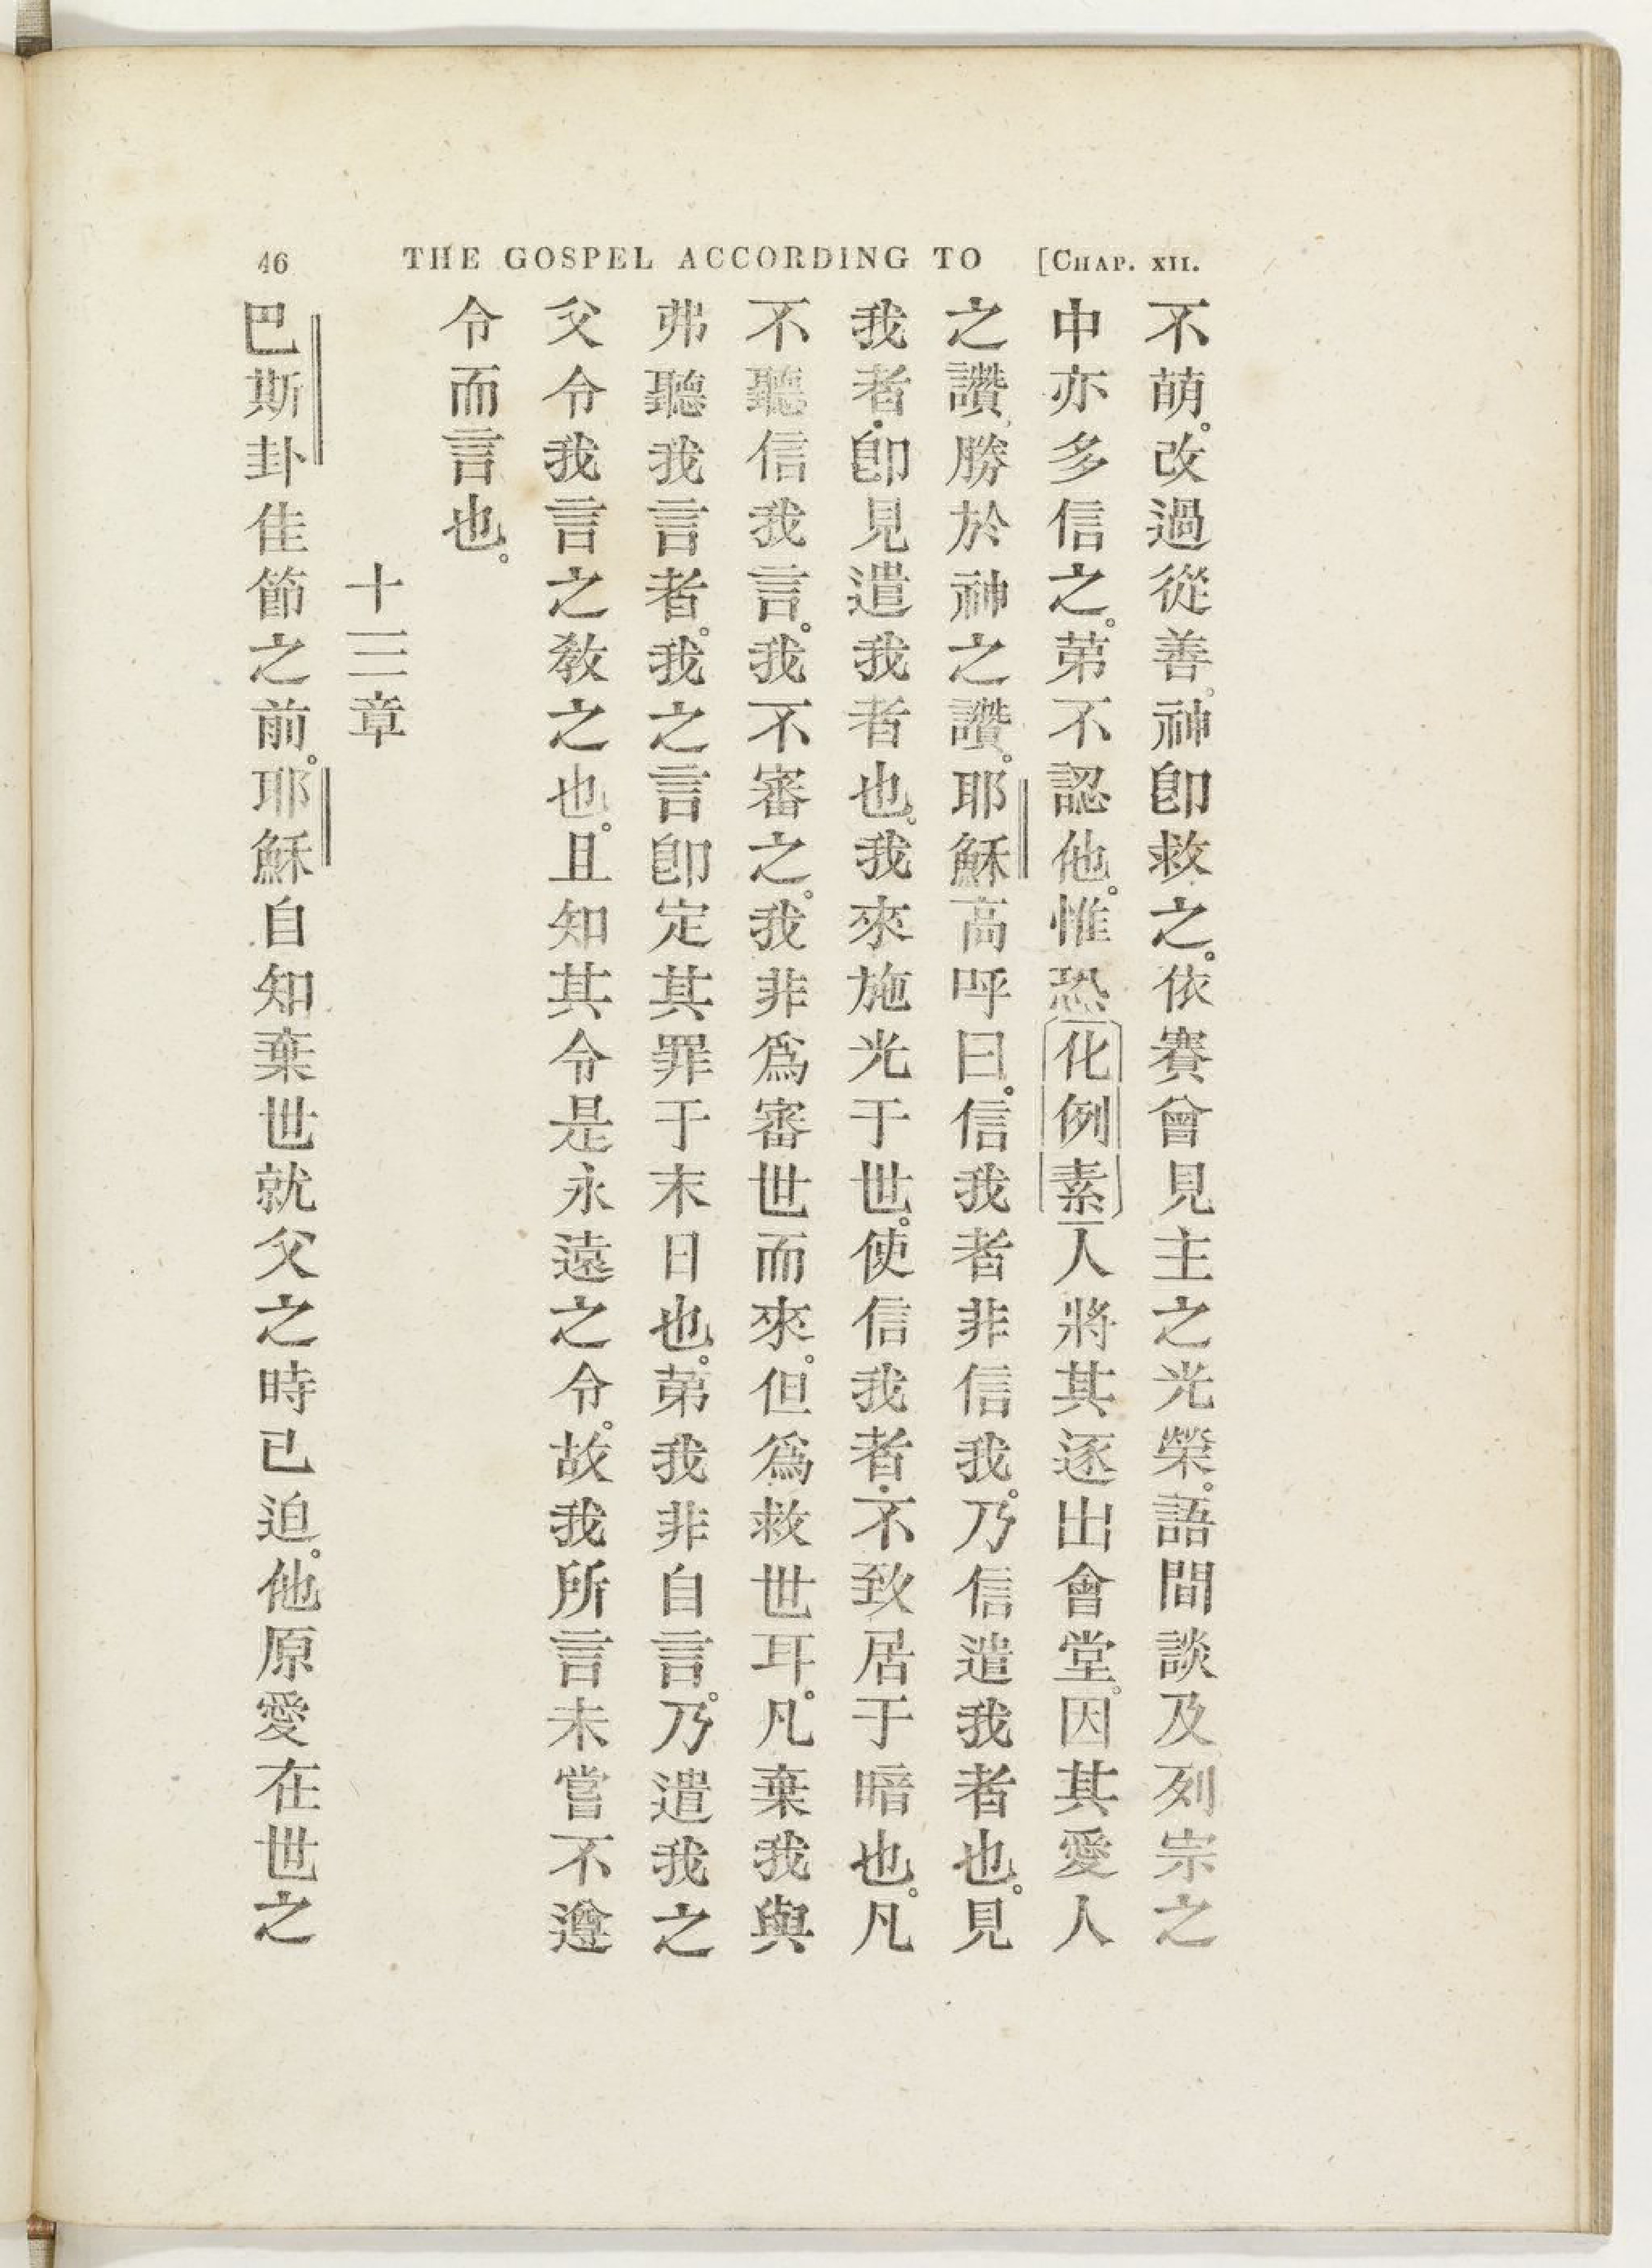 46 THE GOSPEL ACCORDING TO [CHAP. XII.
不萌。改過從善。神卽救之。依賽曾見主之光榮。語間談及列宗之
中亦多信之。苐不認他。惟恐〔化例素〕人將其逐出會堂。因其愛人
之讚、勝於神之讚。耶穌高呼曰。信我者非信我。乃信遣我者也。見
我者、卽見遣我者也。我來施光于世。使信我者、不致居于暗也。凡
不聽信我言。我不審之。我非爲審世而來。但爲救世耳。凡棄我與
弗聽我言者。我之言卽定其罪于末日也。苐我非自言。乃遣我之
父令我言之敎之也。且知其令是永遠之令。故我所言未嘗不遵
令而言也。
十三章
巴斯卦佳節之前。耶穌自知棄世就父之時已迫。他原愛在世之